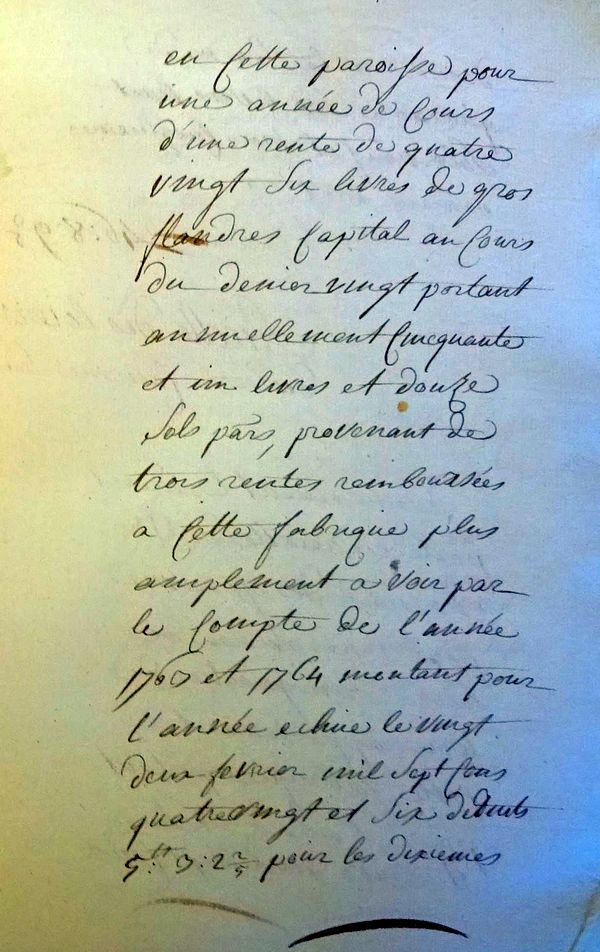 en Cette paroisse pour
une année de Cours
d'une rente de quatre
vingt six livres de gros
flandres Capital au Cours
du denier vingt portant
annuellement Cincquante
et un livres et douze
sols pars, provenant de
trois rentes remboursées
a Cette fabrique plus
amplement a voir par
le Compte de l'année
1763 et 1764 montant pour
l'année echue le vingt
deux fevrier mil Sept Cens
quatrevingt et Six deduits
5tt: 3: 2 2/5 pour les dixiemes